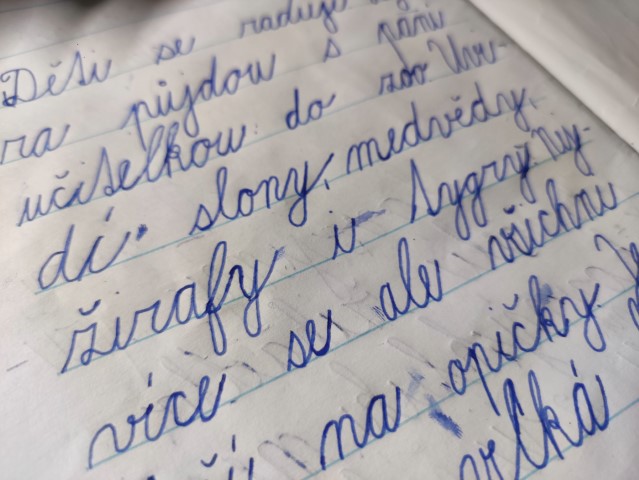 Děti se radují
ra půjdou s paní
učitelkou do zoo Uvi-
dí slony, medvědy,
žirafy i tygry. Nej-
více se ale všichni
na opičky
velká